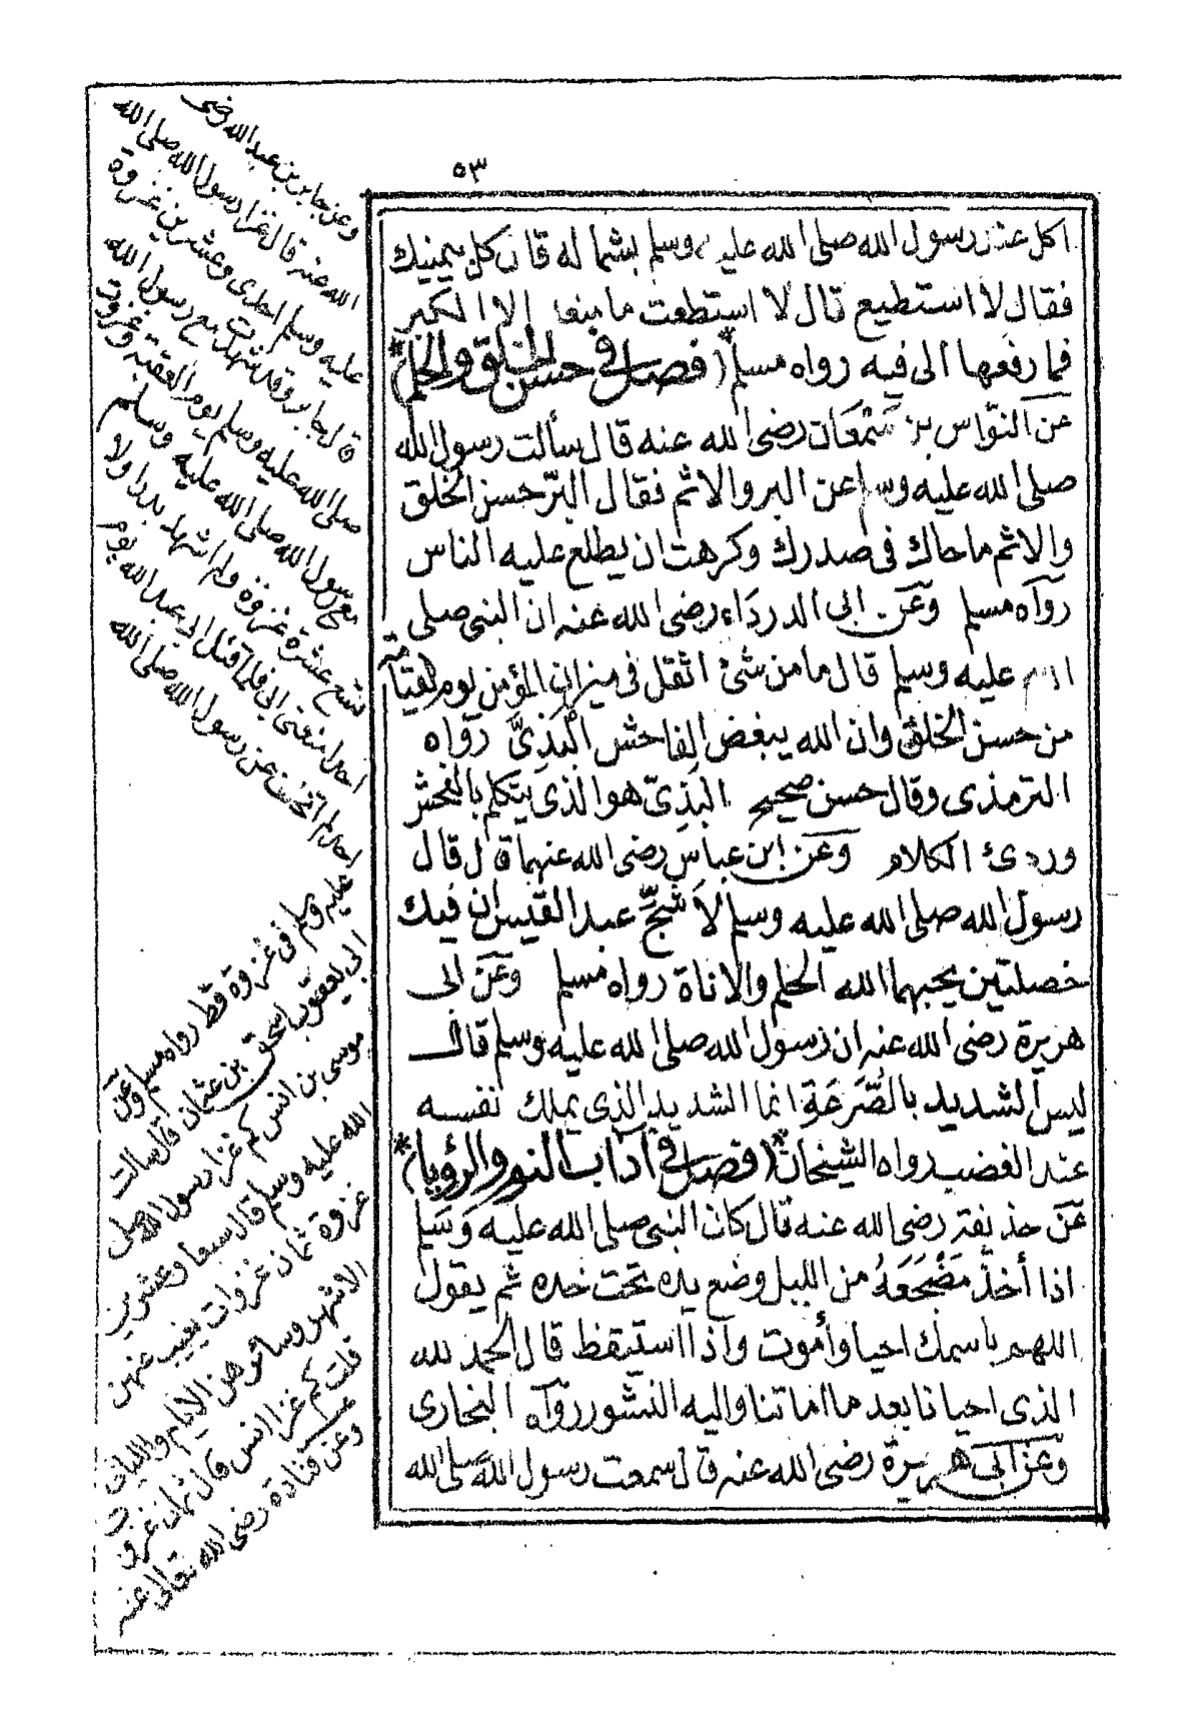 ٥٣
اكل عند رسول الله صلى الله عليه وسلم بشماله قال كل بيمينك
فقال لا استطيع قال لا استطعت ما منعه الا الكبر
فما رفعها الى فيه رواه مسلم * (فصل في حسن الخلق والحلم) *
عن النوّاس بن سَمْعَان رضى الله عنه قال سألت رسول الله
صلى الله عليه وسلم عن البر والاثم فقال البرّ حسن الخلق
والاثم ما حاك فى صدرك وكرهت ان يطلع عليه الناس
رواه مسلم وعن ابى الدرداء رضى الله عنه ان النبى صلى
الله عليه وسلم قال ما من شئ اثقل فى ميزان المؤمن يوم القيامة
من حسن الخلق وان الله يبغض الفاحش البَذِىَّ رواه
الترمذى وقال حسن صحيح البَذِىّ هو الذى يتكلم بالفحش
وردئ الكلام وعن ابن عباس رضى الله عنهما قال قال
رسول الله صلى الله عليه وسلم لاَشَجِّ عبد القيس ان فيك
خصلتين يحبهما الله الحلم والاناة رواه مسلم وعن ابى
هريرة رضى الله عنه ان رسول الله صلى الله عليه وسلم قال
ليس الشديد بالصُّرَعَةِ انما الشديد الذى يملك نفسه
عند الغضب رواه الشيخان * (فصل فى آداب النوم والرؤيا) *
عن حذيفة رضى الله عنه قال كان النبى صلى الله عليه وسلم
اذا أخذ مَضْجَعَهُ من الليل وضع يده تحت خده ثم يقول
اللهم باسمك احيا وأموت واذا استيقظ قال الحمد لله
الذى احيانا بعد ما اماتنا واليه النشور رواه البخارى
وعن ابى هريرة رضى الله عنه قال سمعت رسول الله صلى الله
وعن جابر بن عبد الله رضى
الله عنه قال غزا رسول الله صلى الله
عليه وسلم احدى وعشرين غزوة
قال جابر وقد شهدت مع رسول الله
صلى الله عليه وسلم يوم العقبة وغزوت
مع رسول الله صلى الله عليه وسلم
تسع عشرة غزوة ولم اشهد بدرا ولا
احدا منعنى ابى فلما قتل ابى عبد الله يوم
احد لم اتخلف عن رسول الله صلى الله
عليه وسلم فى غزوة قط رواه مسلم وعن
ابى يعقوب اسحق بن عثمان قال سالت
موسى بن انس كم غزا رسول الله صلى
الله عليه وسلم قال سبعا وعشرين
غزوة ثمان غزوات يغيب عنهن
الاشهر وسائرهن الايام والليالى
قلت كم غزا انس قال ثمان غزوات
وعن قتادة رضى الله تعالى عنه